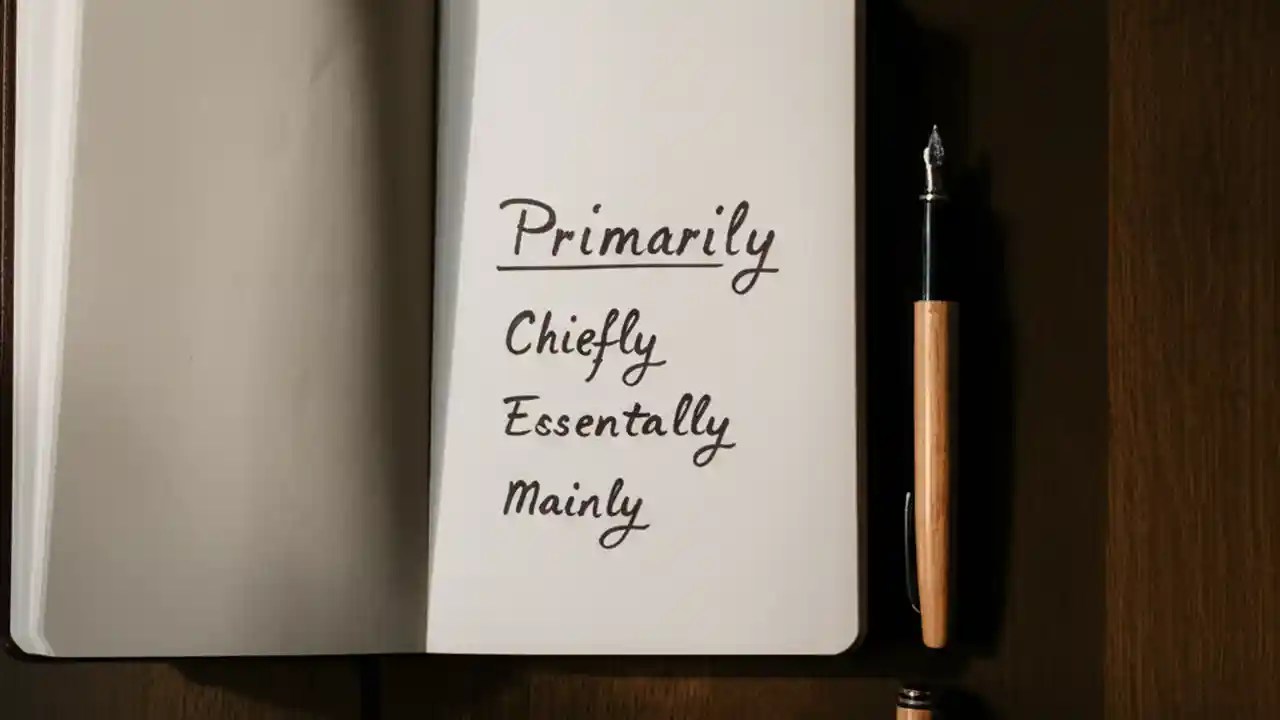 Primarily
Chiefly
Essentally
Mainly